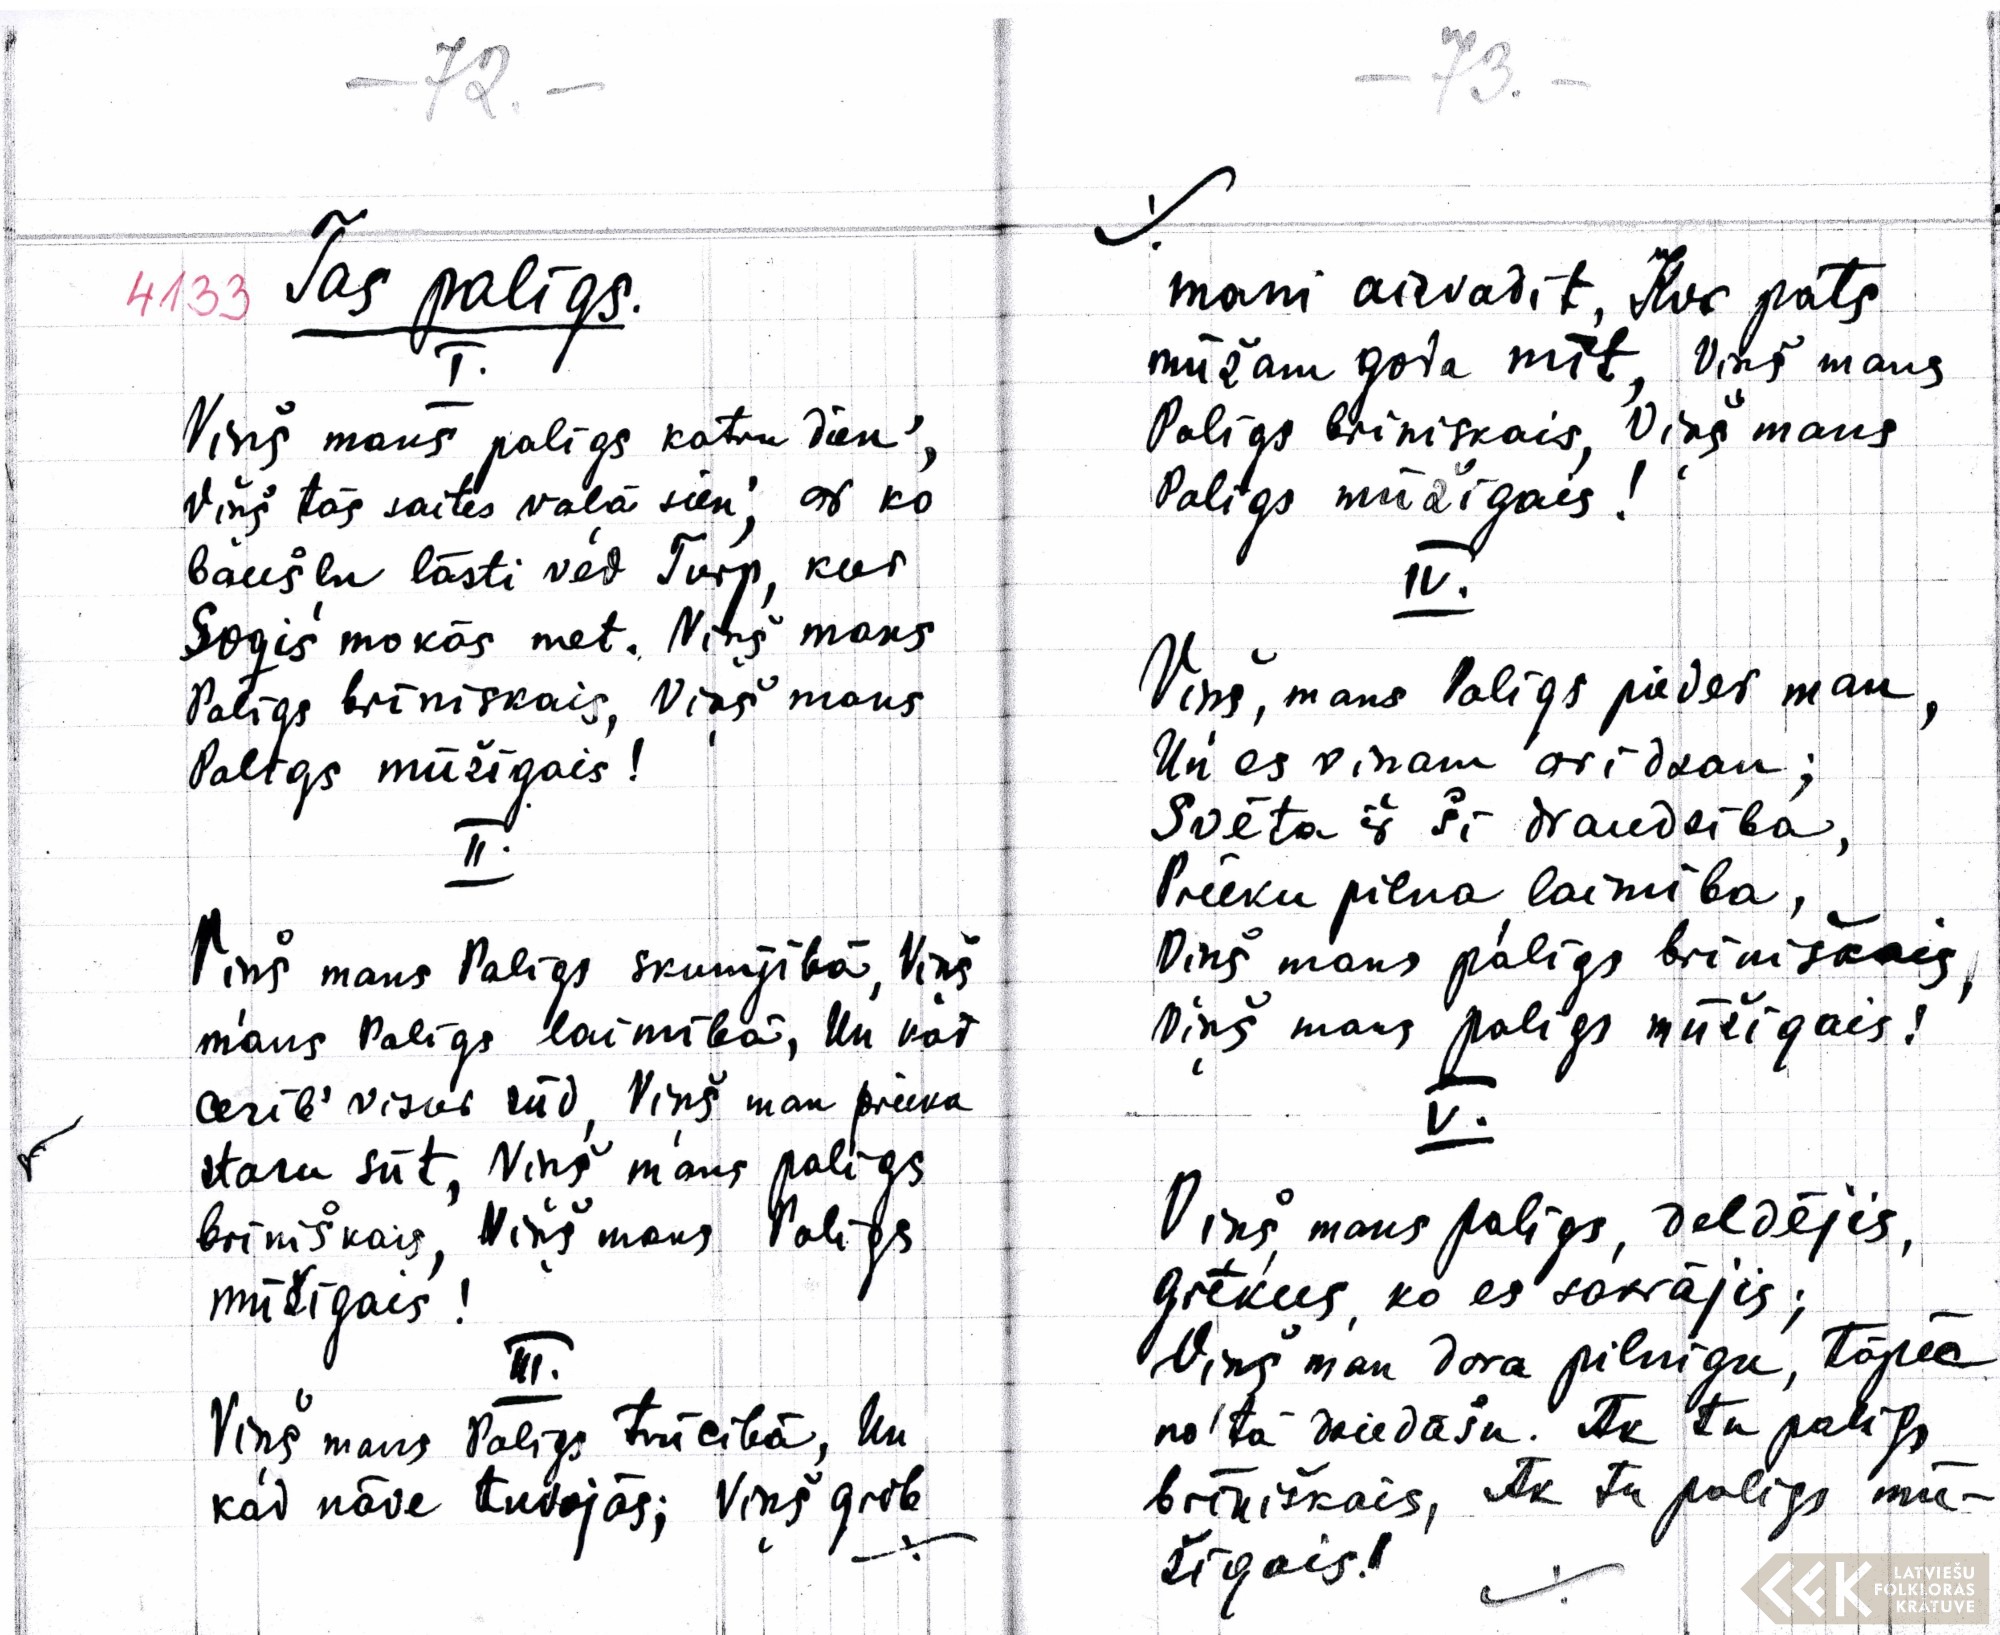 — 72. —
4133 Tas palīgs.
I.
Viņš mans palīgs katru dien',
Viņš tās saites vaļā sien', ar ko
baušļu lāsti vēd Turp, kur
Soģis mokās met. Viņš mans
Palīgs brīniskais, Viņš mans
Palīgs mūžīgais!
II.
Viņš mans Palīgs skumjībā, Viņš
mans Palīgs laimībā, Un kad
cerīb' visur zūd, Viņš man prieka
staru sūt, Viņš mans palīgs
brīniškais, Viņš mans Palīgs
mūžīgais!
III.
Viņš mans Palīgs trūcībā, Un
kad nāve tuvojās; Viņš grib
— 73. —
mani aizvadīt, Kur pats
mūžam goda mīt, Viņš mans
Palīgs brīniskais, Viņš mans
Palīgs mūžīgais!
IV.
Viņš, mans Palīgs pieder man,
Un es viņam arīdzan;
Svēta ir šī draudzība,
Prieku pilna laimība,
Viņš mans palīgs brīniškais,
Viņš mans palīgs mūžīgais!
V.
Viņš mans palīgs, deldējis,
Grēkus, ko es sakrājis;
Viņš man dara pilnīgu, Tāpēc
no tā dziedāšu. Ak tu palīgs
brīniškais, Ak tu palīgs mū-
žīgais!
LATVIEŠU
FOLKLORAS
KRĀTUVE